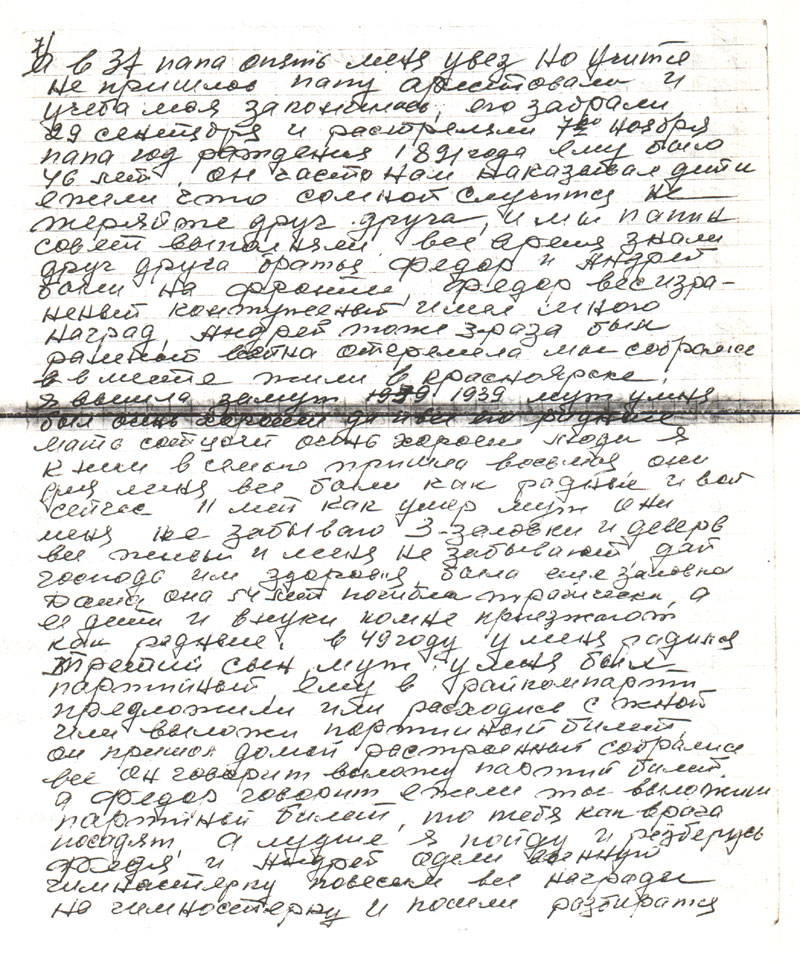 7/
а в 37 папа опять меня увез но учится
не пришлос папу арестовали и
учеба моя закончилась, его забрали
29 сентебря и растреляли 7го ноября
папа год раждения 1891года ему было
46 лет он часто нам наказывал дети
ежели что сомной случится не
теряйте друг друга, и мы папин
совет выполняли все время знали
друг друга братья Федор и Андрей
были на фронте, Федор весизра-
неный контуженый имел много
наград, Андрей тоже 3-раза был
раненый война отгремела мы собрались
в вместе жили в Красноярске.
я вышла замуж 1939 1939 муж у меня
был очень хороший да и все по радные
мать сотцом очень хорошие люди я
к ним в семью пришла восьмая они
для меня все были как радные и вот
сейчас 11 лет как умер муж они
меня не забываю 3-заловки и деверь
все живы и меня не забывают дай
господь им здоровья, была еще заловка
Даша она 54 лет погибла трагически, а
ее дети и внуки комне приезжают
как радные. в 49 году у меня радился
третий сын, муж у меня был
партийный ему в райкомпарти
предложили или расходись с жной
или выложи партийный билет,
он пришол домой растроенный собрались
все он говорит выложу партий билет.
а Федор говорит ежели ты выложиш
партйной билет, то тебя как врага
посадят, а лудше я пойду и розберусь
Федя и Андрей одели военную
гимнастерку повесели все награды
на гимностерку и пошли разбиратся